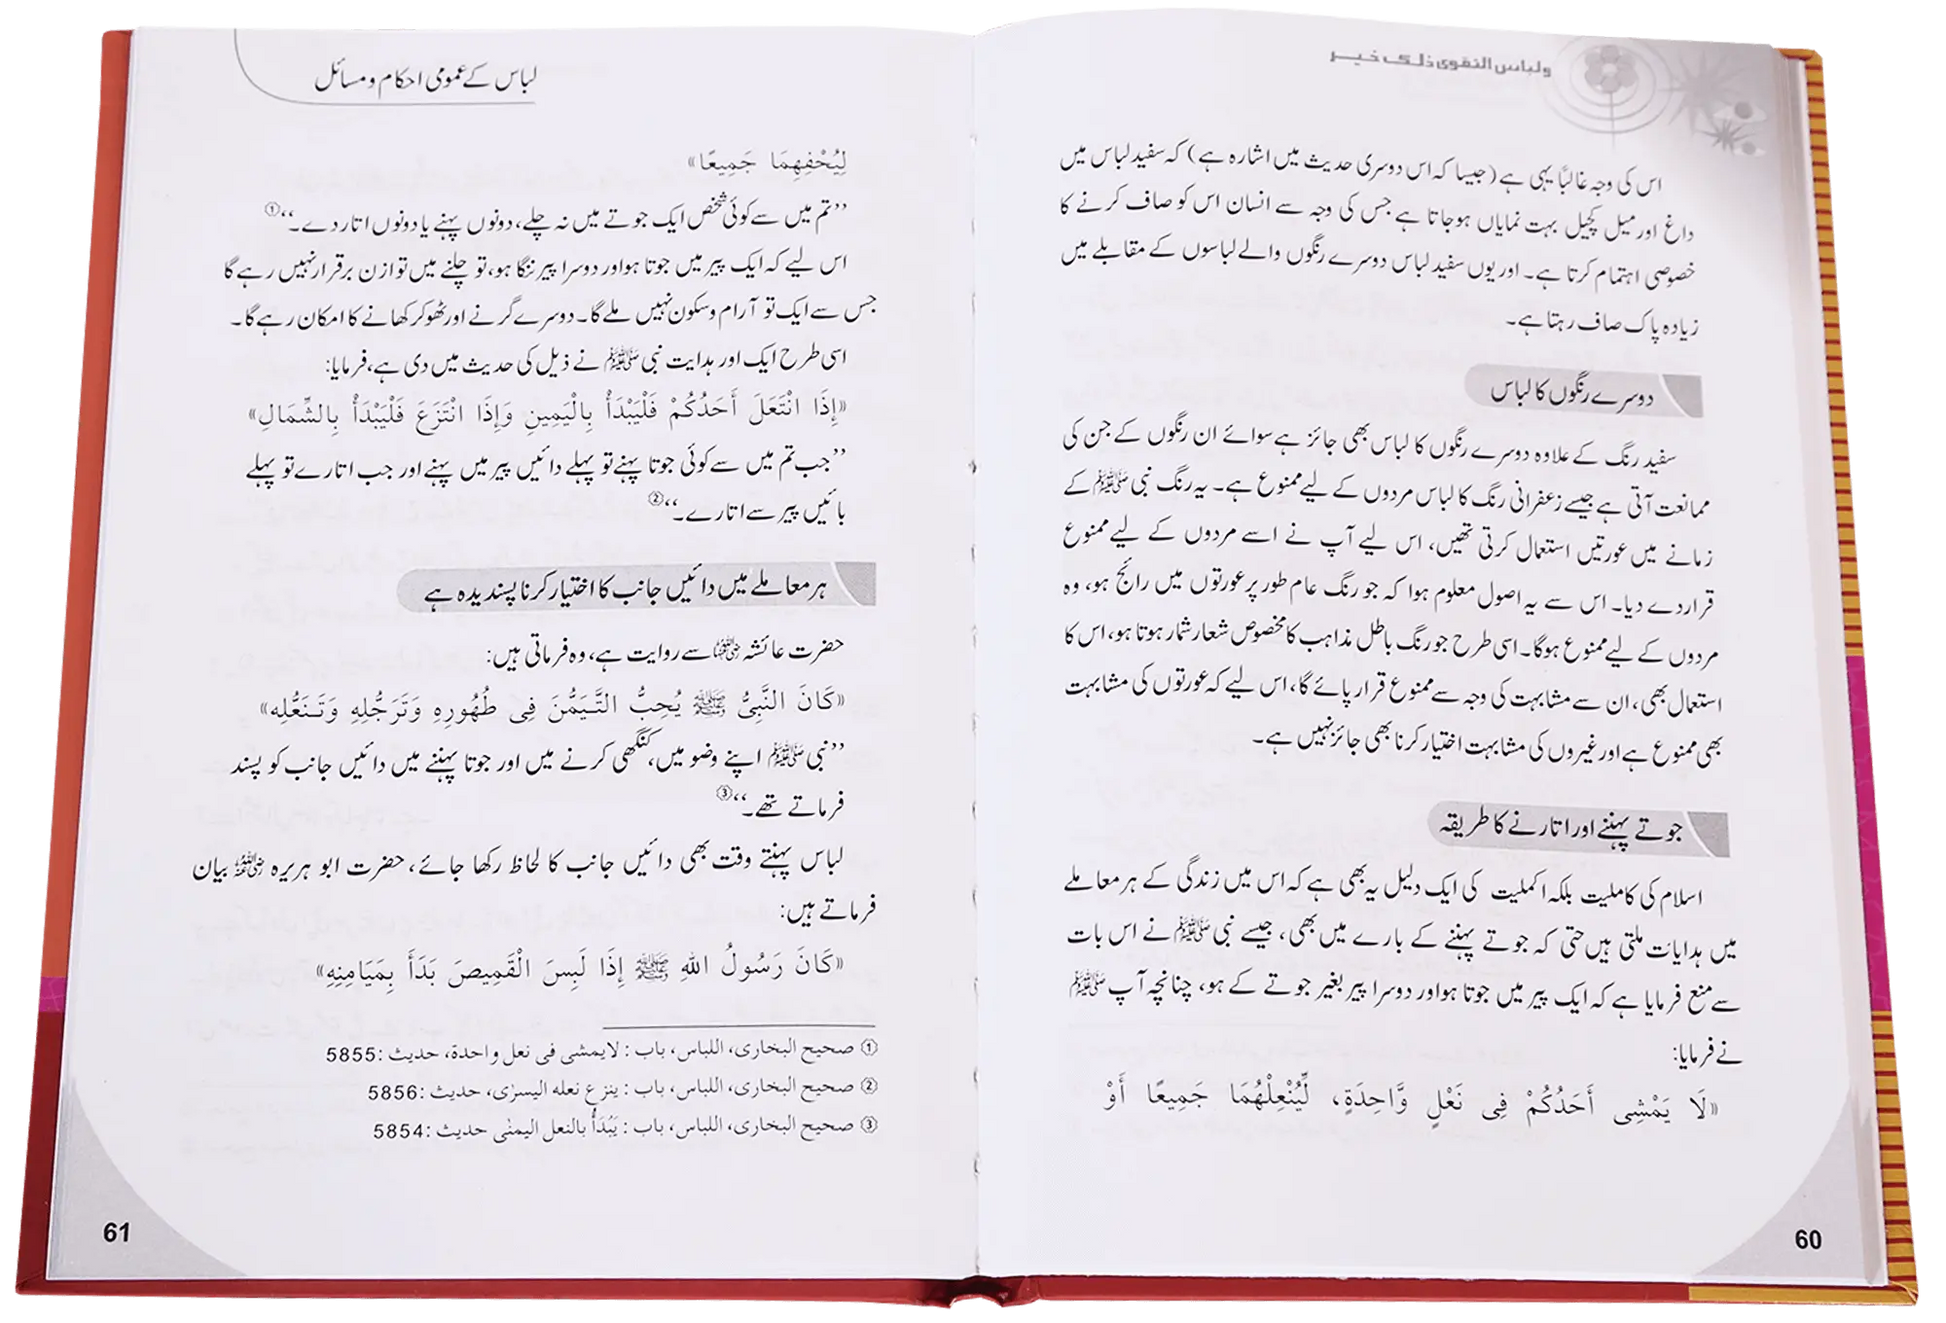 ولباس التقوى ذلك خير
اس کی وجہ غالباً یہی ہے (جیسا کہ اس دوسری حدیث میں اشارہ ہے) کہ سفید لباس میں
داغ اور میل کچیل بہت نمایاں ہو جاتا ہے جس کی وجہ سے انسان اس کو صاف کرنے کا
خصوصی اہتمام کرتا ہے۔ اور یوں سفید لباس دوسرے رنگوں والے لباسوں کے مقابلے میں
زیادہ پاک صاف رہتا ہے۔
دوسرے رنگوں کا لباس
سفید رنگ کے علاوہ دوسرے رنگوں کا لباس بھی جائز ہے سوائے ان رنگوں کے جن کی
ممانعت آتی ہے جیسے زعفرانی رنگ کا لباس مردوں کے لیے ممنوع ہے۔ یہ رنگ نبی ﷺ کے
زمانے میں عورتیں استعمال کرتی تھیں، اس لیے آپ نے اسے مردوں کے لیے ممنوع
قرار دے دیا۔ اس سے یہ اصول معلوم ہوا کہ جو رنگ عام طور پر عورتوں میں رائج ہو، وہ
مردوں کے لیے ممنوع ہوگا۔ اسی طرح جو رنگ باطل مذاہب کا مخصوص شعار شمار ہوتا ہو، اس کا
استعمال بھی، ان سے مشابہت کی وجہ سے ممنوع قرار پائے گا، اس لیے کہ عورتوں کی مشابہت
بھی ممنوع ہے اور غیروں کی مشابہت اختیار کرنا بھی جائز نہیں ہے۔
جوتے پہننے اور اتارنے کا طریقہ
اسلام کی کاملیت بلکہ اکملیت کی ایک دلیل یہ بھی ہے کہ اس میں زندگی کے ہر معاملے
میں ہدایات ملتی ہیں حتی کہ جوتے پہننے کے بارے میں بھی، جیسے نبی ﷺ نے اس بات
سے منع فرمایا ہے کہ ایک پیر میں جوتا ہو اور دوسرا پیر بغیر جوتے کے ہو، چنانچہ آپ ﷺ
نے فرمایا:
«لَا يَمْشِى أَحَدُكُمْ فِى نَعْلٍ وَّاحِدَةٍ، لِّيُنْعِلْهُمَا جَمِيعًا أَوْ
60
لباس کے عمومی احکام و مسائل
لِيُحْفِهِمَا جَمِيعًا»
’’تم میں سے کوئی شخص ایک جوتے میں نہ چلے، دونوں پہنے یا دونوں اتار دے۔‘‘①
اس لیے کہ ایک پیر میں جوتا ہو اور دوسرا پیر ننگا ہو، تو چلنے میں توازن برقرار نہیں رہے گا
جس سے ایک تو آرام و سکون نہیں ملے گا۔ دوسرے گرنے اور ٹھوکر کھانے کا امکان رہے گا۔
اسی طرح ایک اور ہدایت نبی ﷺ نے ذیل کی حدیث میں دی ہے، فرمایا:
«إِذَا انْتَعَلَ أَحَدُكُمْ فَلْيَبْدَأْ بِالْيَمِينِ وَإِذَا انْتَزَعَ فَلْيَبْدَأْ بِالشِّمَالِ»
’’جب تم میں سے کوئی جوتا پہنے تو پہلے دائیں پیر میں پہنے اور جب اتارے تو پہلے
بائیں پیر سے اتارے۔‘‘②
ہر معاملے میں دائیں جانب کا اختیار کرنا پسندیدہ ہے
حضرت عائشہ رضی اللہ عنہا سے روایت ہے، وہ فرماتی ہیں:
«كَانَ النَّبِىُّ ﷺ يُحِبُّ التَّيَمُّنَ فِى طُهُورِهِ وَتَرَجُّلِهِ وَتَنَعُّلِه»
’’نبی ﷺ اپنے وضو میں، کنگھی کرنے میں اور جوتا پہننے میں دائیں جانب کو پسند
فرماتے تھے۔‘‘③
لباس پہنتے وقت بھی دائیں جانب کا لحاظ رکھا جائے، حضرت ابو ہریرہ رضی اللہ عنہ بیان
فرماتے ہیں:
«كَانَ رَسُولُ اللهِ ﷺ إِذَا لَبِسَ الْقَمِيصَ بَدَأَ بِمَيَامِنِهِ»
① صحيح البخارى، اللباس، باب : لايمشى فى نعل واحدة، حديث :5855
② صحيح البخارى، اللباس، باب : ينزع نعله اليسرٰى، حديث :5856
③ صحيح البخارى، اللباس، باب : يُبْدَأُ بالنعل اليمنٰى حديث :5854
61